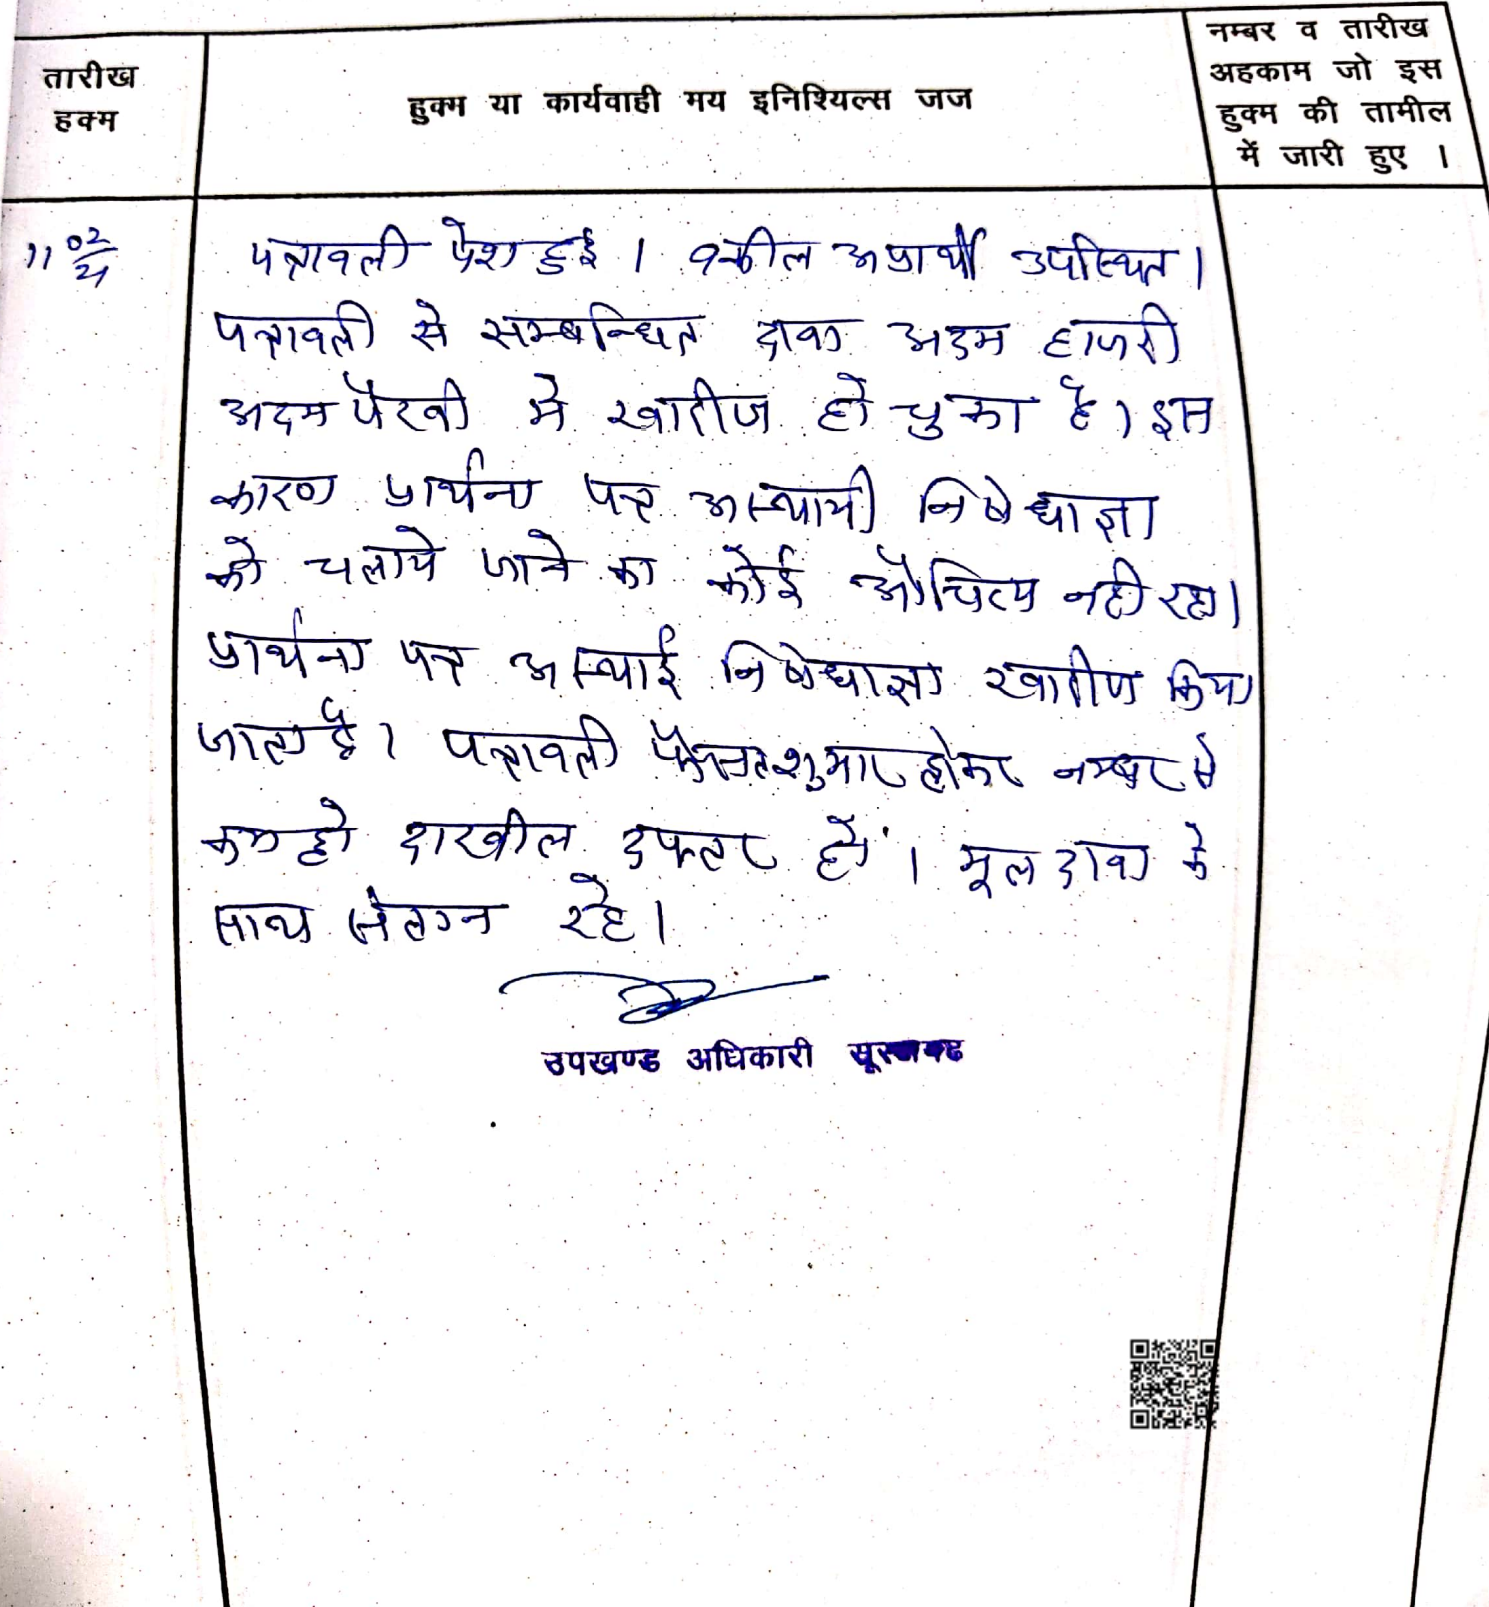 तारीख
हक्म
हुक्म या कार्यवाही मय इनिशियल्स जज
नम्बर व तारीख
अहकाम जो इस
हुक्म की तामील
में जारी हुए ।
11 02
पत्रावली पेश हुई । वकील अप्रार्थी उपस्थित ।
पत्रावली से सम्बन्धित दावा अदम हाजरी
अदम पैरवी मे खारीज हो चुका है । इस
कारण प्रार्थना पत्र अस्थायी निषेधाज्ञा
को चलाये जाने का कोई औचित्य नही रहा ।
प्रार्थना पत्र अस्थाई निषेधाज्ञा खारीज किया
जाता है । पत्रावली फैसलशुमार होकर नम्बर से
कम हो दाखील दफ्तर हो । मूल दावा के
साथ संलग्न रहे ।
उपखण्ड अधिकारी सूरजगढ